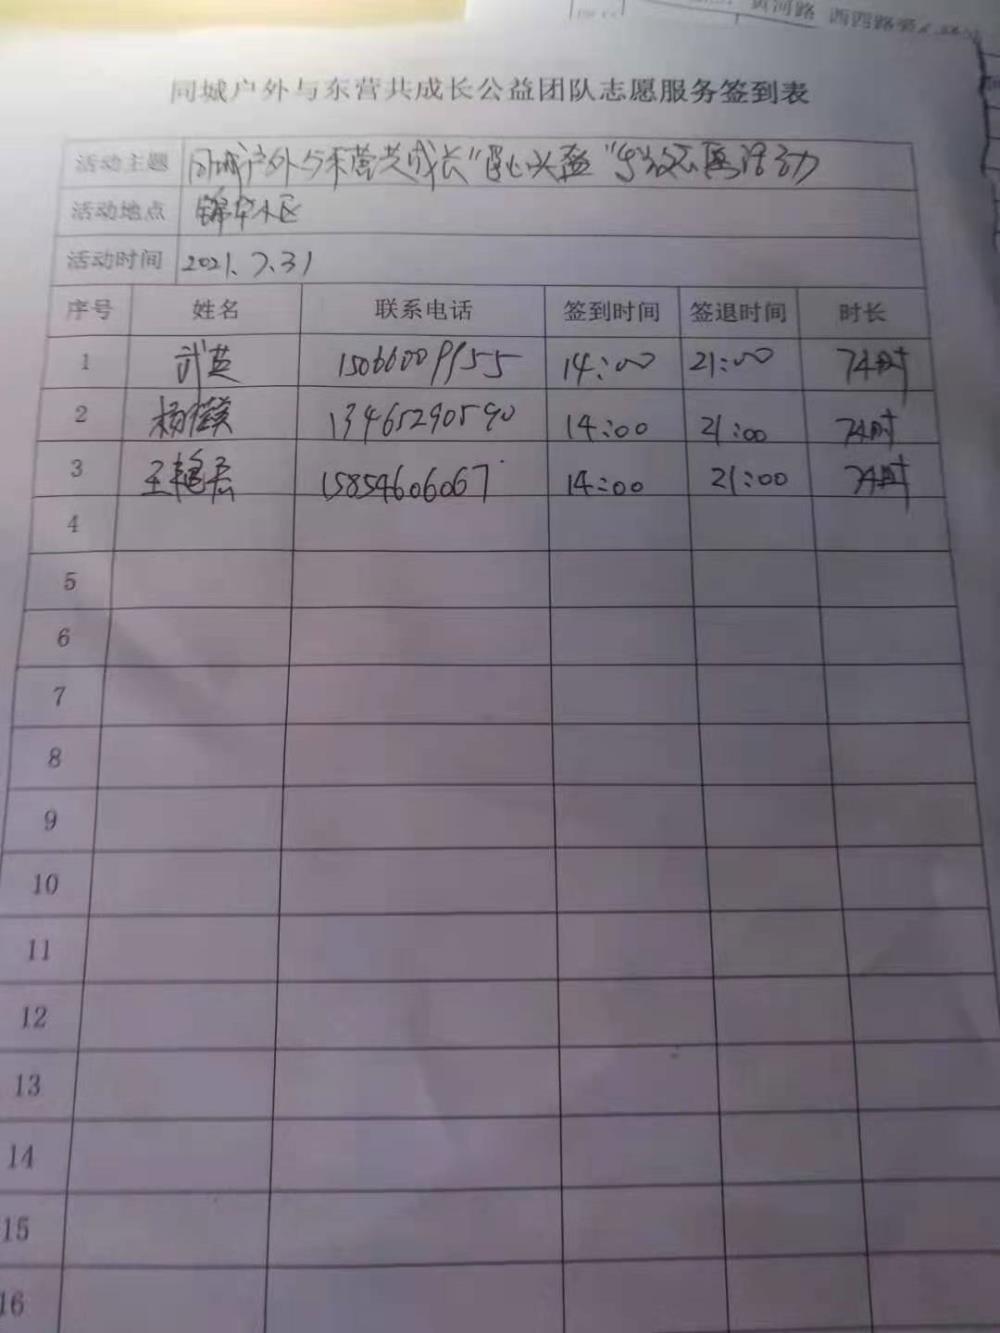 黄河路 西四路
同城户外与东营共成长公益团队志愿服务签到表
活动主题 同城户外与东营共成长"童心
活动地点 锦华小区
活动时间 2021.7.31
序号 姓名 联系电话 签到时间 签退时间 时长
1 武英 15066009955 14:00 21:00 7小时
2 杨 13465290590 14:00 21:00 7小时
3 王艳 15854606067 14:00 21:00 7小时
4
5
6
7
8
9
10
11
12
13
14
15
16